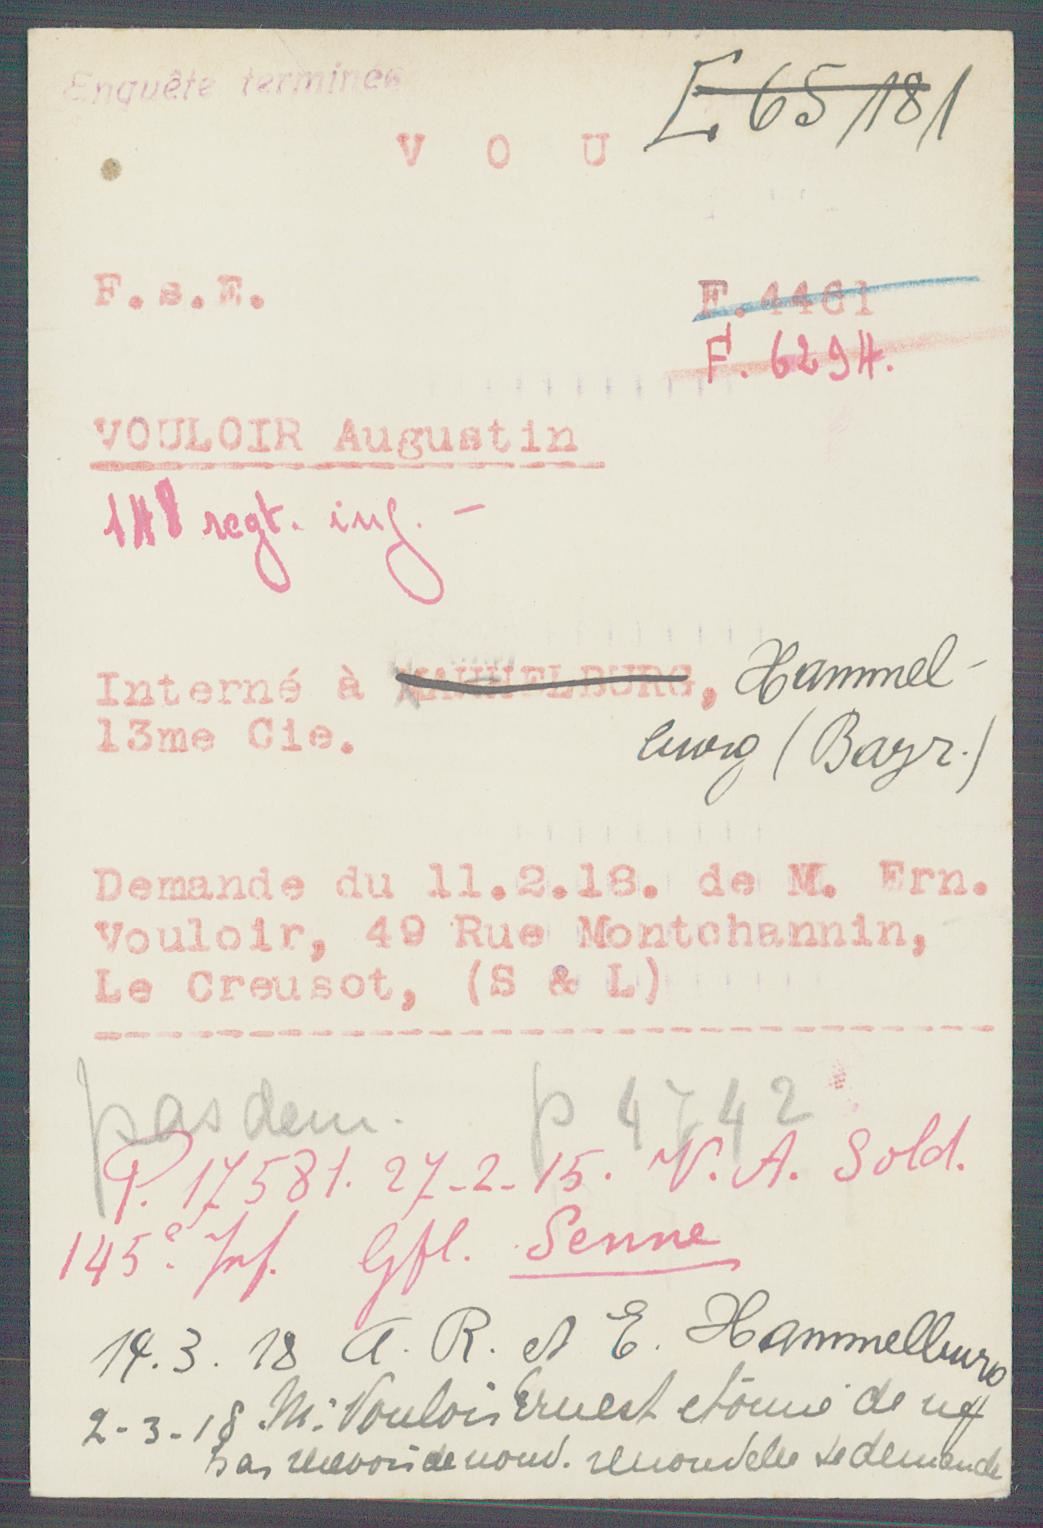 Enquête terminée
E 65/18/1
V O U
F.s.E.
F.4461
F. 6294.
VOULOIR Augustin
148 regt. inf. -
Interné à HAMMELBURG, Hammel-
13me Cie. burg (Bayr.)
Demande du 11.2.18. de M. Ern.
Vouloir, 49 Rue Montchannin,
Le Creusot, (S & L)
pas dem. p 4742
P. 17581. 27-2-15. V. A. Sold.
145e. Inf. Gfl. Senne
14.3.18 A. R. et E. Hammelburg
2-3-18 M. Vouloir Ernest étonné de
pas recevoir de nouv. renouvelle sa demande